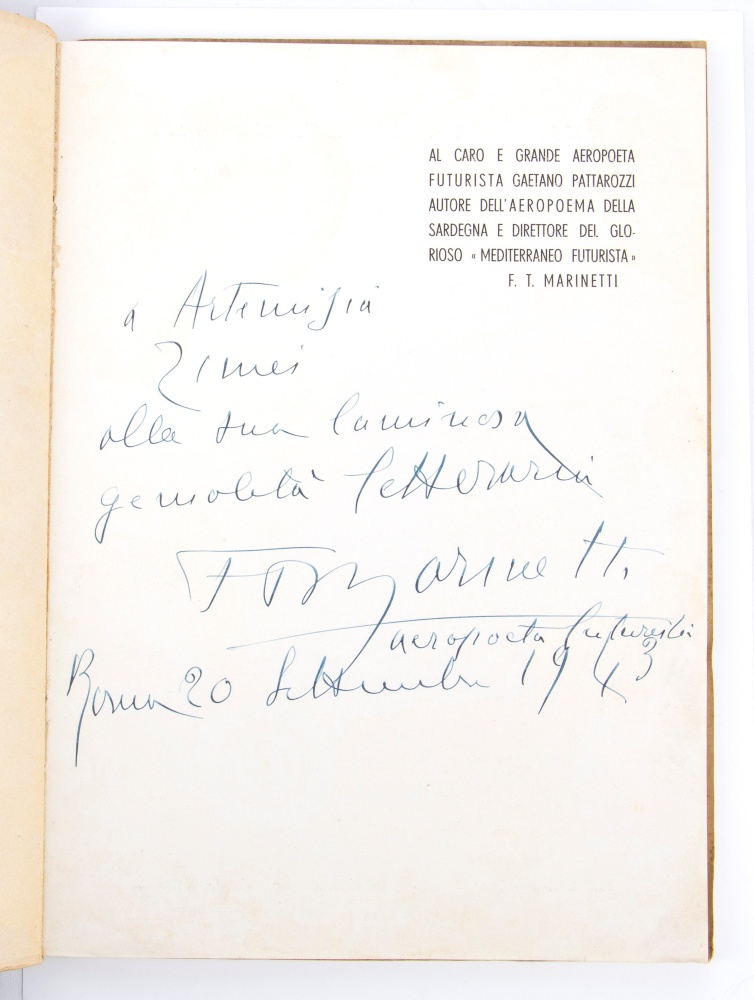 AL CARO E GRANDE AEROPOETA
FUTURISTA GAETANO PATTAROZZI
AUTORE DELL'AEROPOEMA DELLA
SARDEGNA E DIRETTORE DEL GLO-
RIOSO « MEDITERRANEO FUTURISTA »
F. T. MARINETTI
a Artemisia
Zimei
alla sua luminosa
genialità letteraria
FT Marinetti
aeropoeta futurista
Roma 20 Settembre 1943